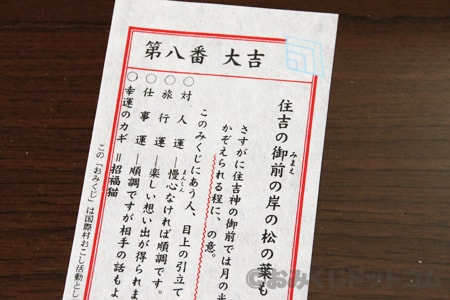 第八番 大吉
住吉の御前の岸の松の葉も
みまえ
さすがに住吉神の御前では月の
かぞえられる程に、の意。
このみくじにあう人、目上の引立て
○対人運―慢心なければ順調です。
まんしん
○旅行運―楽しい想い出が得られま
○仕事運―順調ですが相手の話もよ
○幸運のカギ＝招福猫
この「おみくじ」は国際村おこし活動とし